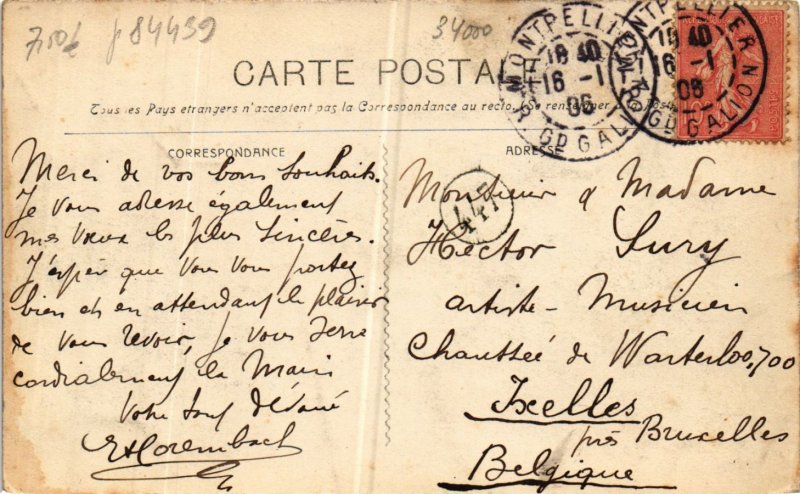 7,50€ p 84439
34000
MONTPELLIER GD GALION
18 40
16 - 1
06
MONTPELLIER GD GALION
18 40
16 - 1
06
CARTE POSTALE
Tous les Pays étrangers n'acceptent pas la Correspondance au recto. (Se renseigner à la Poste)
CORRESPONDANCE
Merci de vos bons souhaits.
Je vous adresse également
mes vœux les plus sincères.
J'espère que vous vous portez
bien et en attendant le plaisir
de vous revoir, je vous serre
cordialement la main
Votre tout dévoué
ADRESSE
Monsieur & Madame
Hector Sury
artiste-Musicien
Chaussée de Warterloo, 700
Ixelles
près Bruxelles
Belgique